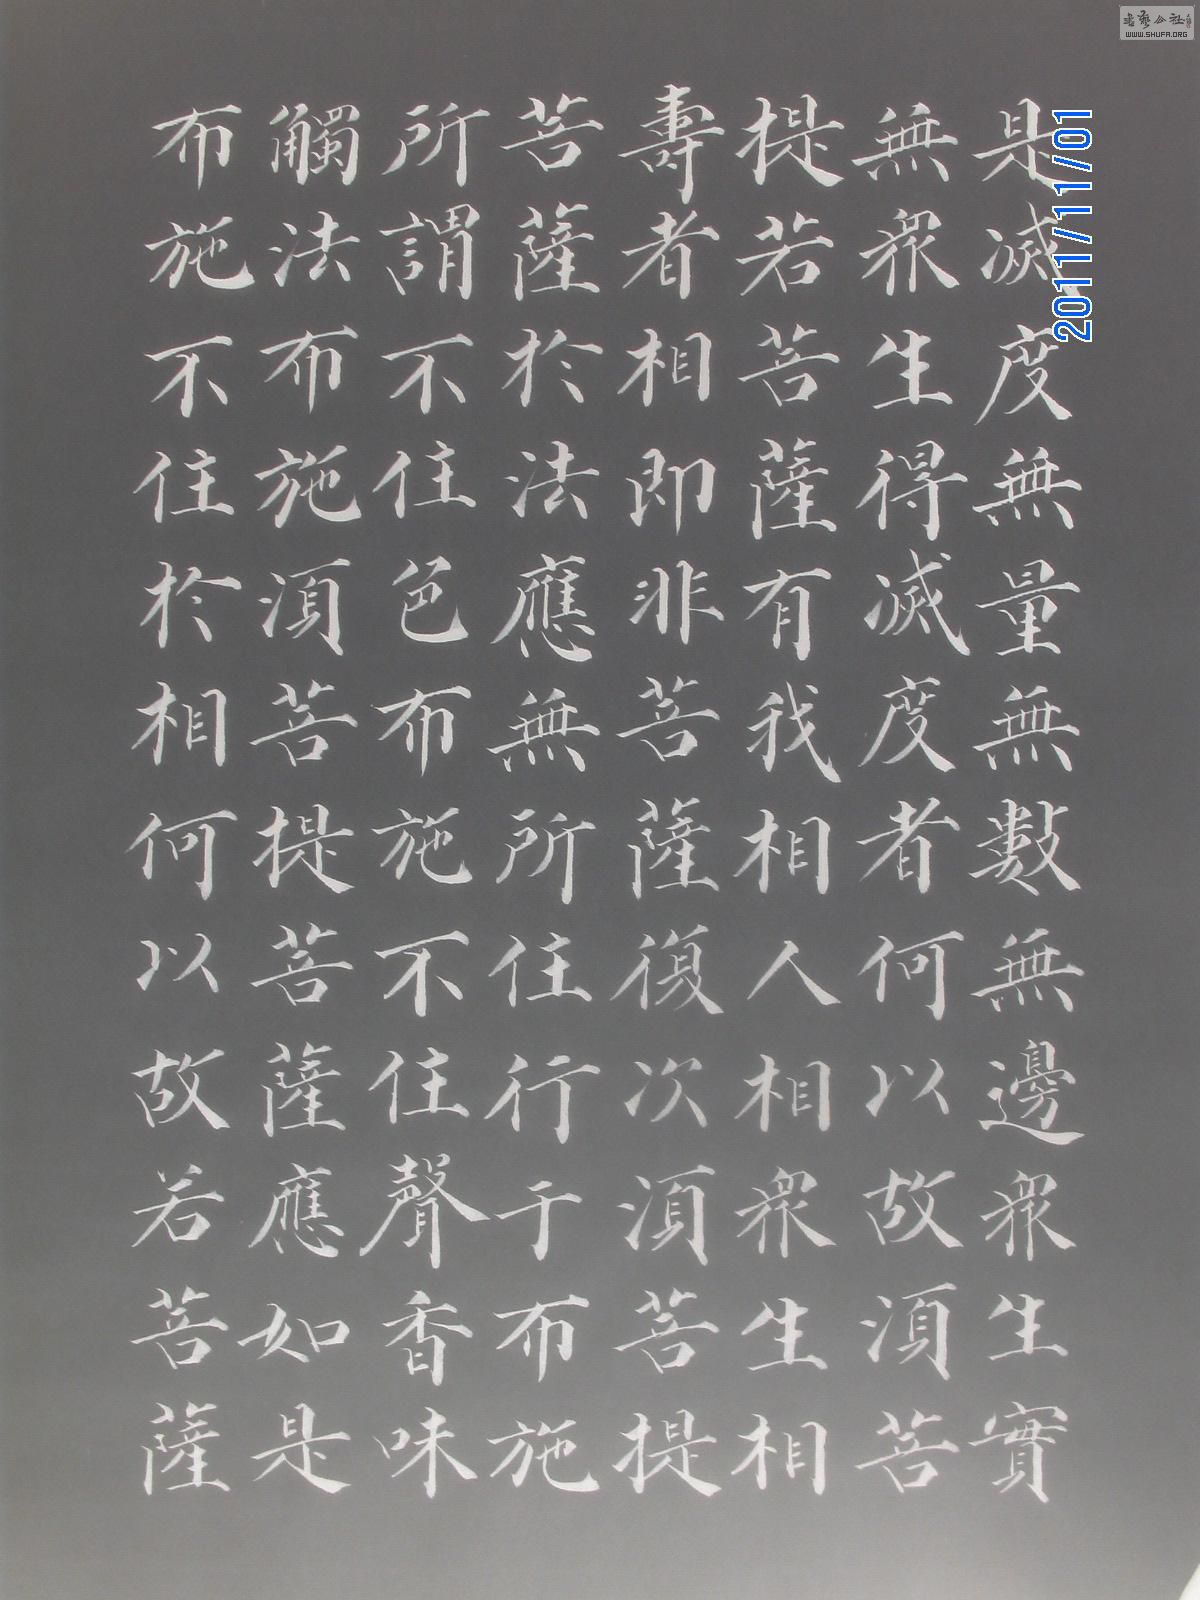 是滅度無量無數無邊眾生實
無眾生得滅度者何以故須菩
提若菩薩有我相人相眾生相
壽者相即非菩薩復次須菩提
菩薩於法應無所住行于布施
所謂不住色布施不住聲香味
觸法布施須菩提菩薩應如是
布施不住於相何以故若菩薩
2011/11/01
書藝公社
WWW.SHUFA.ORG